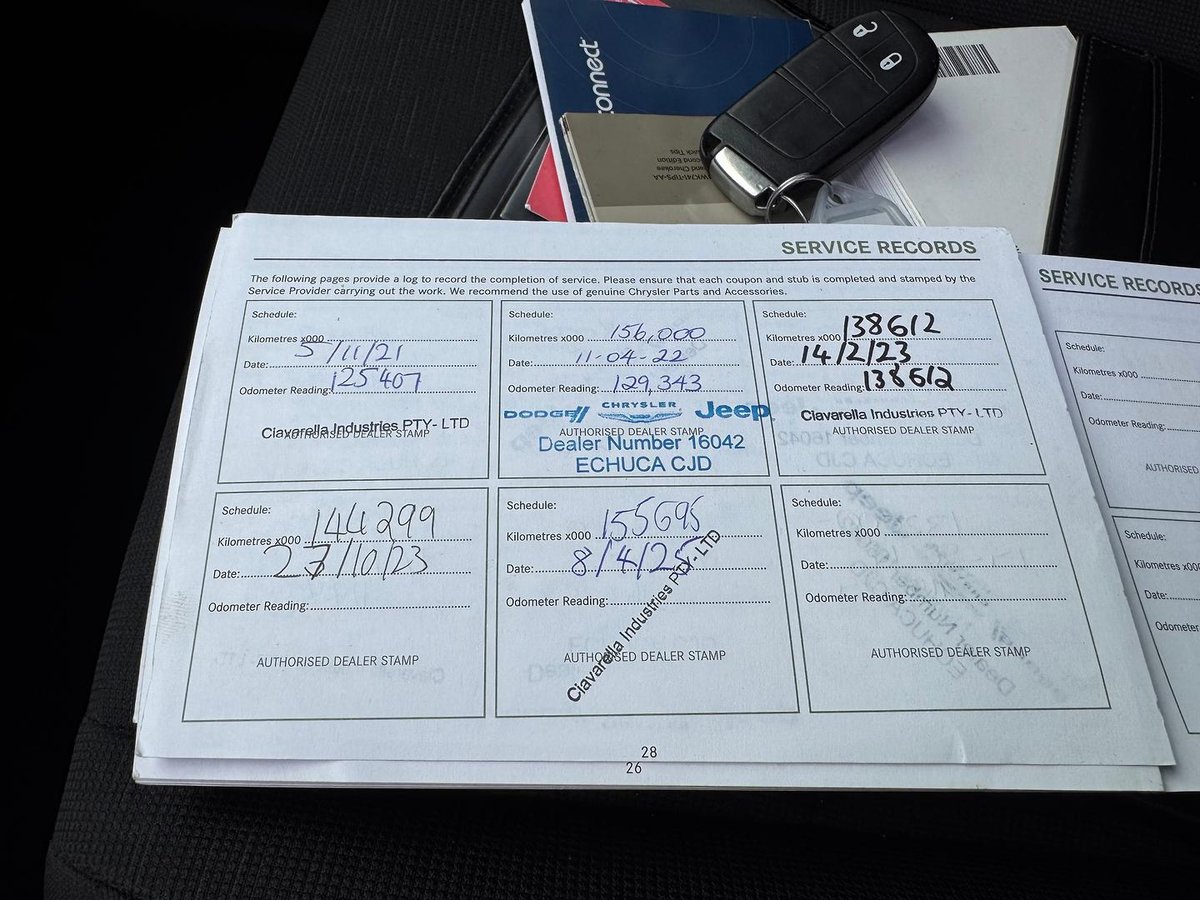 connect
WK741-TIPS-AA
Quick Tips
SERVICE RECORDS
The following pages provide a log to record the completion of service. Please ensure that each coupon and stub is completed and stamped by the
Service Provider carrying out the work. We recommend the use of genuine Chrysler Parts and Accessories.
Schedule:
Kilometres x000
Date: 5/11/21
Odometer Reading: 125407
Ciavarella Industries PTY- LTD
AUTHORISED DEALER STAMP
Schedule:
Kilometres x000 156,000
Date: 11-04-22
Odometer Reading: 129,343
DODGE// CHRYSLER Jeep
AUTHORISED DEALER STAMP
Dealer Number 16042
ECHUCA CJD
Schedule:
Kilometres x000 138612
Date: 14/2/23
Odometer Reading: 138612
Ciavarella Industries PTY- LTD
AUTHORISED DEALER STAMP
Schedule:
Kilometres x000 144299
Date: 27/10/23
Odometer Reading:
AUTHORISED DEALER STAMP
Schedule:
Kilometres x000 155695
Date: 8/4/25
Odometer Reading:
Ciavarella Industries PTY- LTD
AUTHORISED DEALER STAMP
Schedule:
Kilometres x000
Date:
Odometer Reading:
AUTHORISED DEALER STAMP
28
26
SERVICE RECORDS
Schedule:
Kilometres x000
Date:
Odometer Reading:
AUTHORISED
Schedule:
Kilometres x000
Date:
Odometer